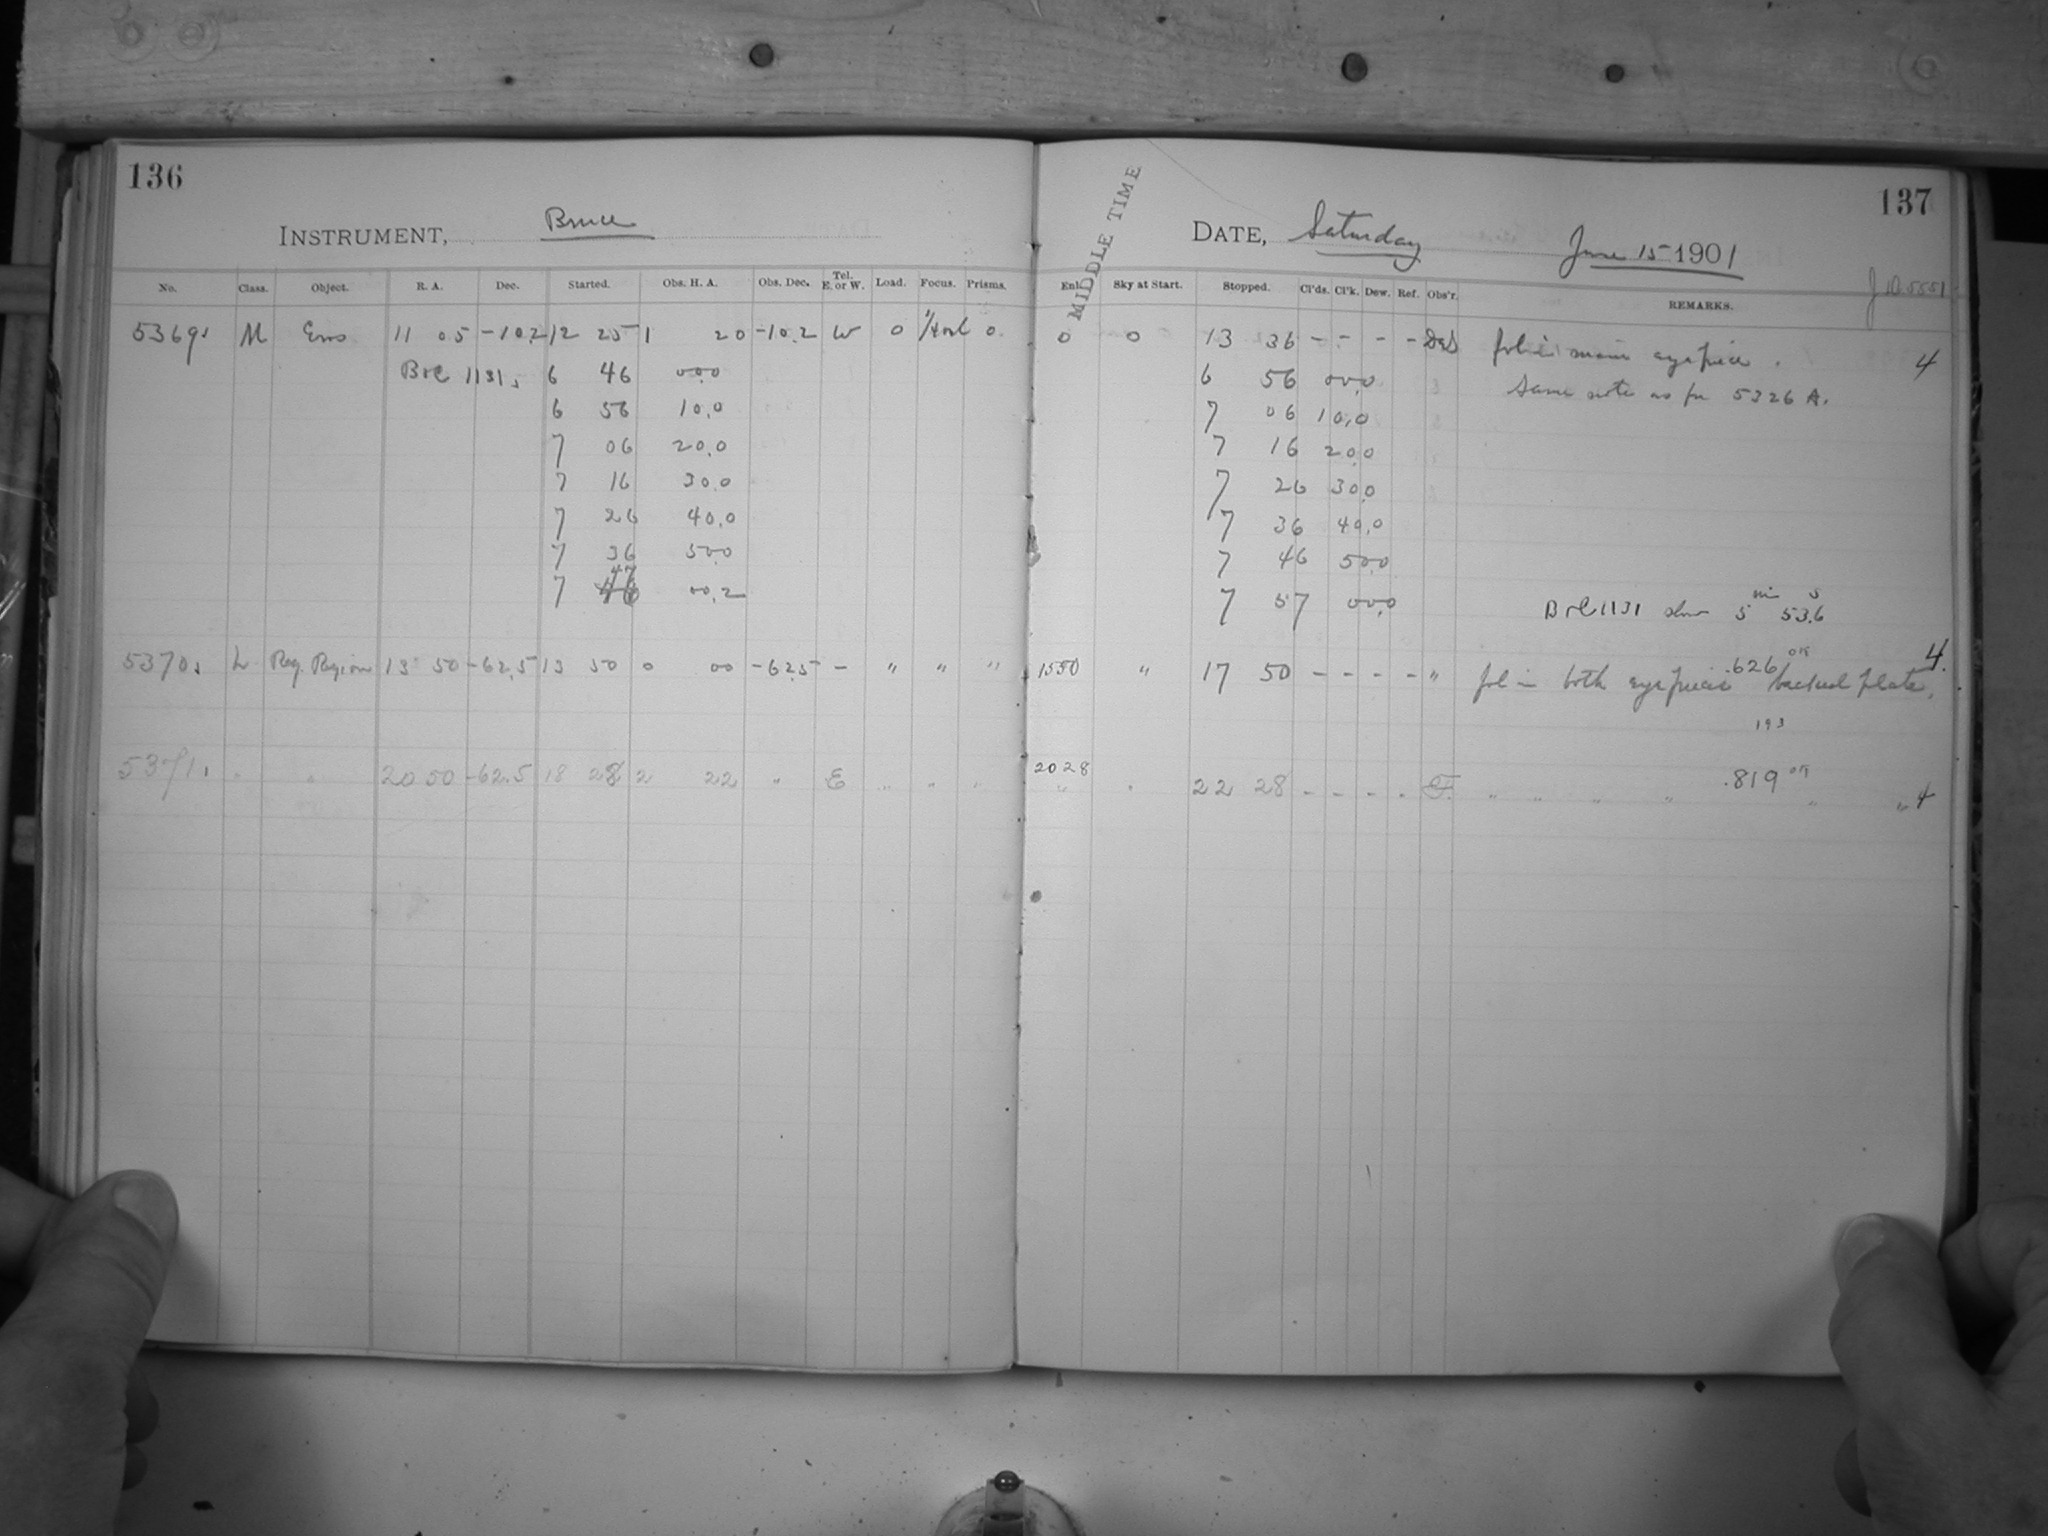 136
INSTRUMENT, Bruce
No. Class. Object. R. A. Dec. Started. Obs. H. A. Obs. Dec. Tel. E. or W. Load. Focus. Prisms.
5369 M Eros 11 05 -10.2 12 25 1 20 -10.2 W 0 0
1131 6 46 00.0
6 56 10.0
7 06 20.0
7 16 30.0
7 26 40.0
7 36 50.0
7 47 00.2
5370 L Reg. Region 13 50 -62.5 13 50 0 00 -62.5 - " " "
5371 " " 20 50 -62.5 18 28 2 22 " E " " "
137
MIDDLE TIME
DATE, Saturday June 15 1901
J 10.5551
Enl. Sky at Start. Stopped. Cl'ds. Cl'k. Dew. Ref. Obs'r. REMARKS.
0 0 13 36 - - - - fol in main eyepiece. 4
6 56 00.0 Same note as for 5326 A.
7 06 10.0
7 16 20.0
7 26 30.0
7 36 40.0
7 46 50.0
7 57 00.0 1131 slow 5 min 53.6 s
1550 " 17 50 - - - - " fol in both eyepieces backed plate. .626 OK 4.
193
2028 " " 22 28 - - - - F. " " " " .819 OK " " 4